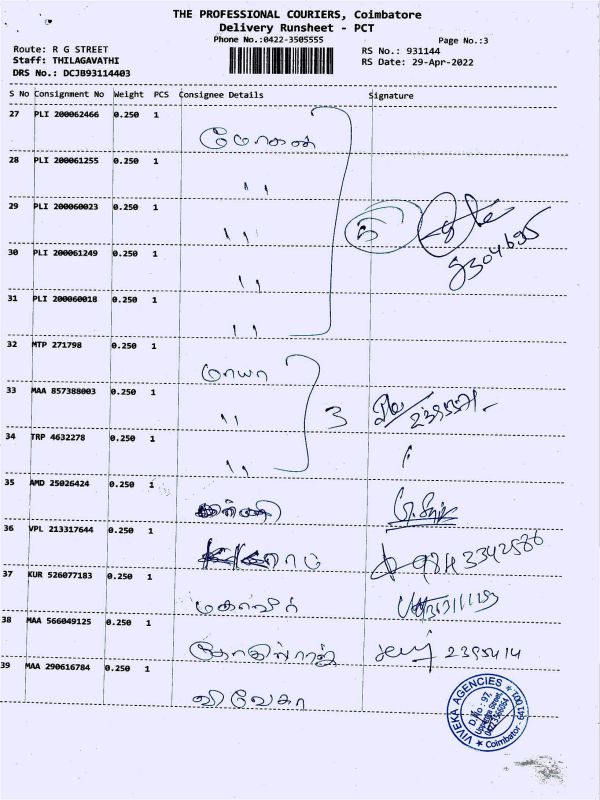 THE PROFESSIONAL COURIERS, Coimbatore
Delivery Runsheet - PCT
Phone No.:0422-3505555
Page No.:3
Route: R G STREET
RS No.: 931144
Staff: THILAGAVATHI
RS Date: 29-Apr-2022
DRS No.: DCJB93114403
S No Consignment No Weight PCS Consignee Details Signature
27 PLI 200062466 0.250 1
மோகன்
28 PLI 200061255 0.250 1
" "
29 PLI 200060023 0.250 1
" "
5
30 PLI 200061249 0.250 1
" "
31 PLI 200060018 0.250 1
" "
32 MTP 271798 0.250 1
மாயா
33 MAA 857388003 0.250 1
" "
3
34 TRP 4632278 0.250 1
" "
35 AMD 25026424 0.250 1
36 VPL 213317644 0.250 1
9843342586
37 KUR 526077183 0.250 1
மகாவீர்
38 MAA 566049125 0.250 1
2395414
39 MAA 290616784 0.250 1
விவேகா
VIVEKA AGENCIES
D.No: 97,
Coimbatore - 641 001